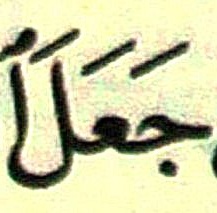 جَعَلَا